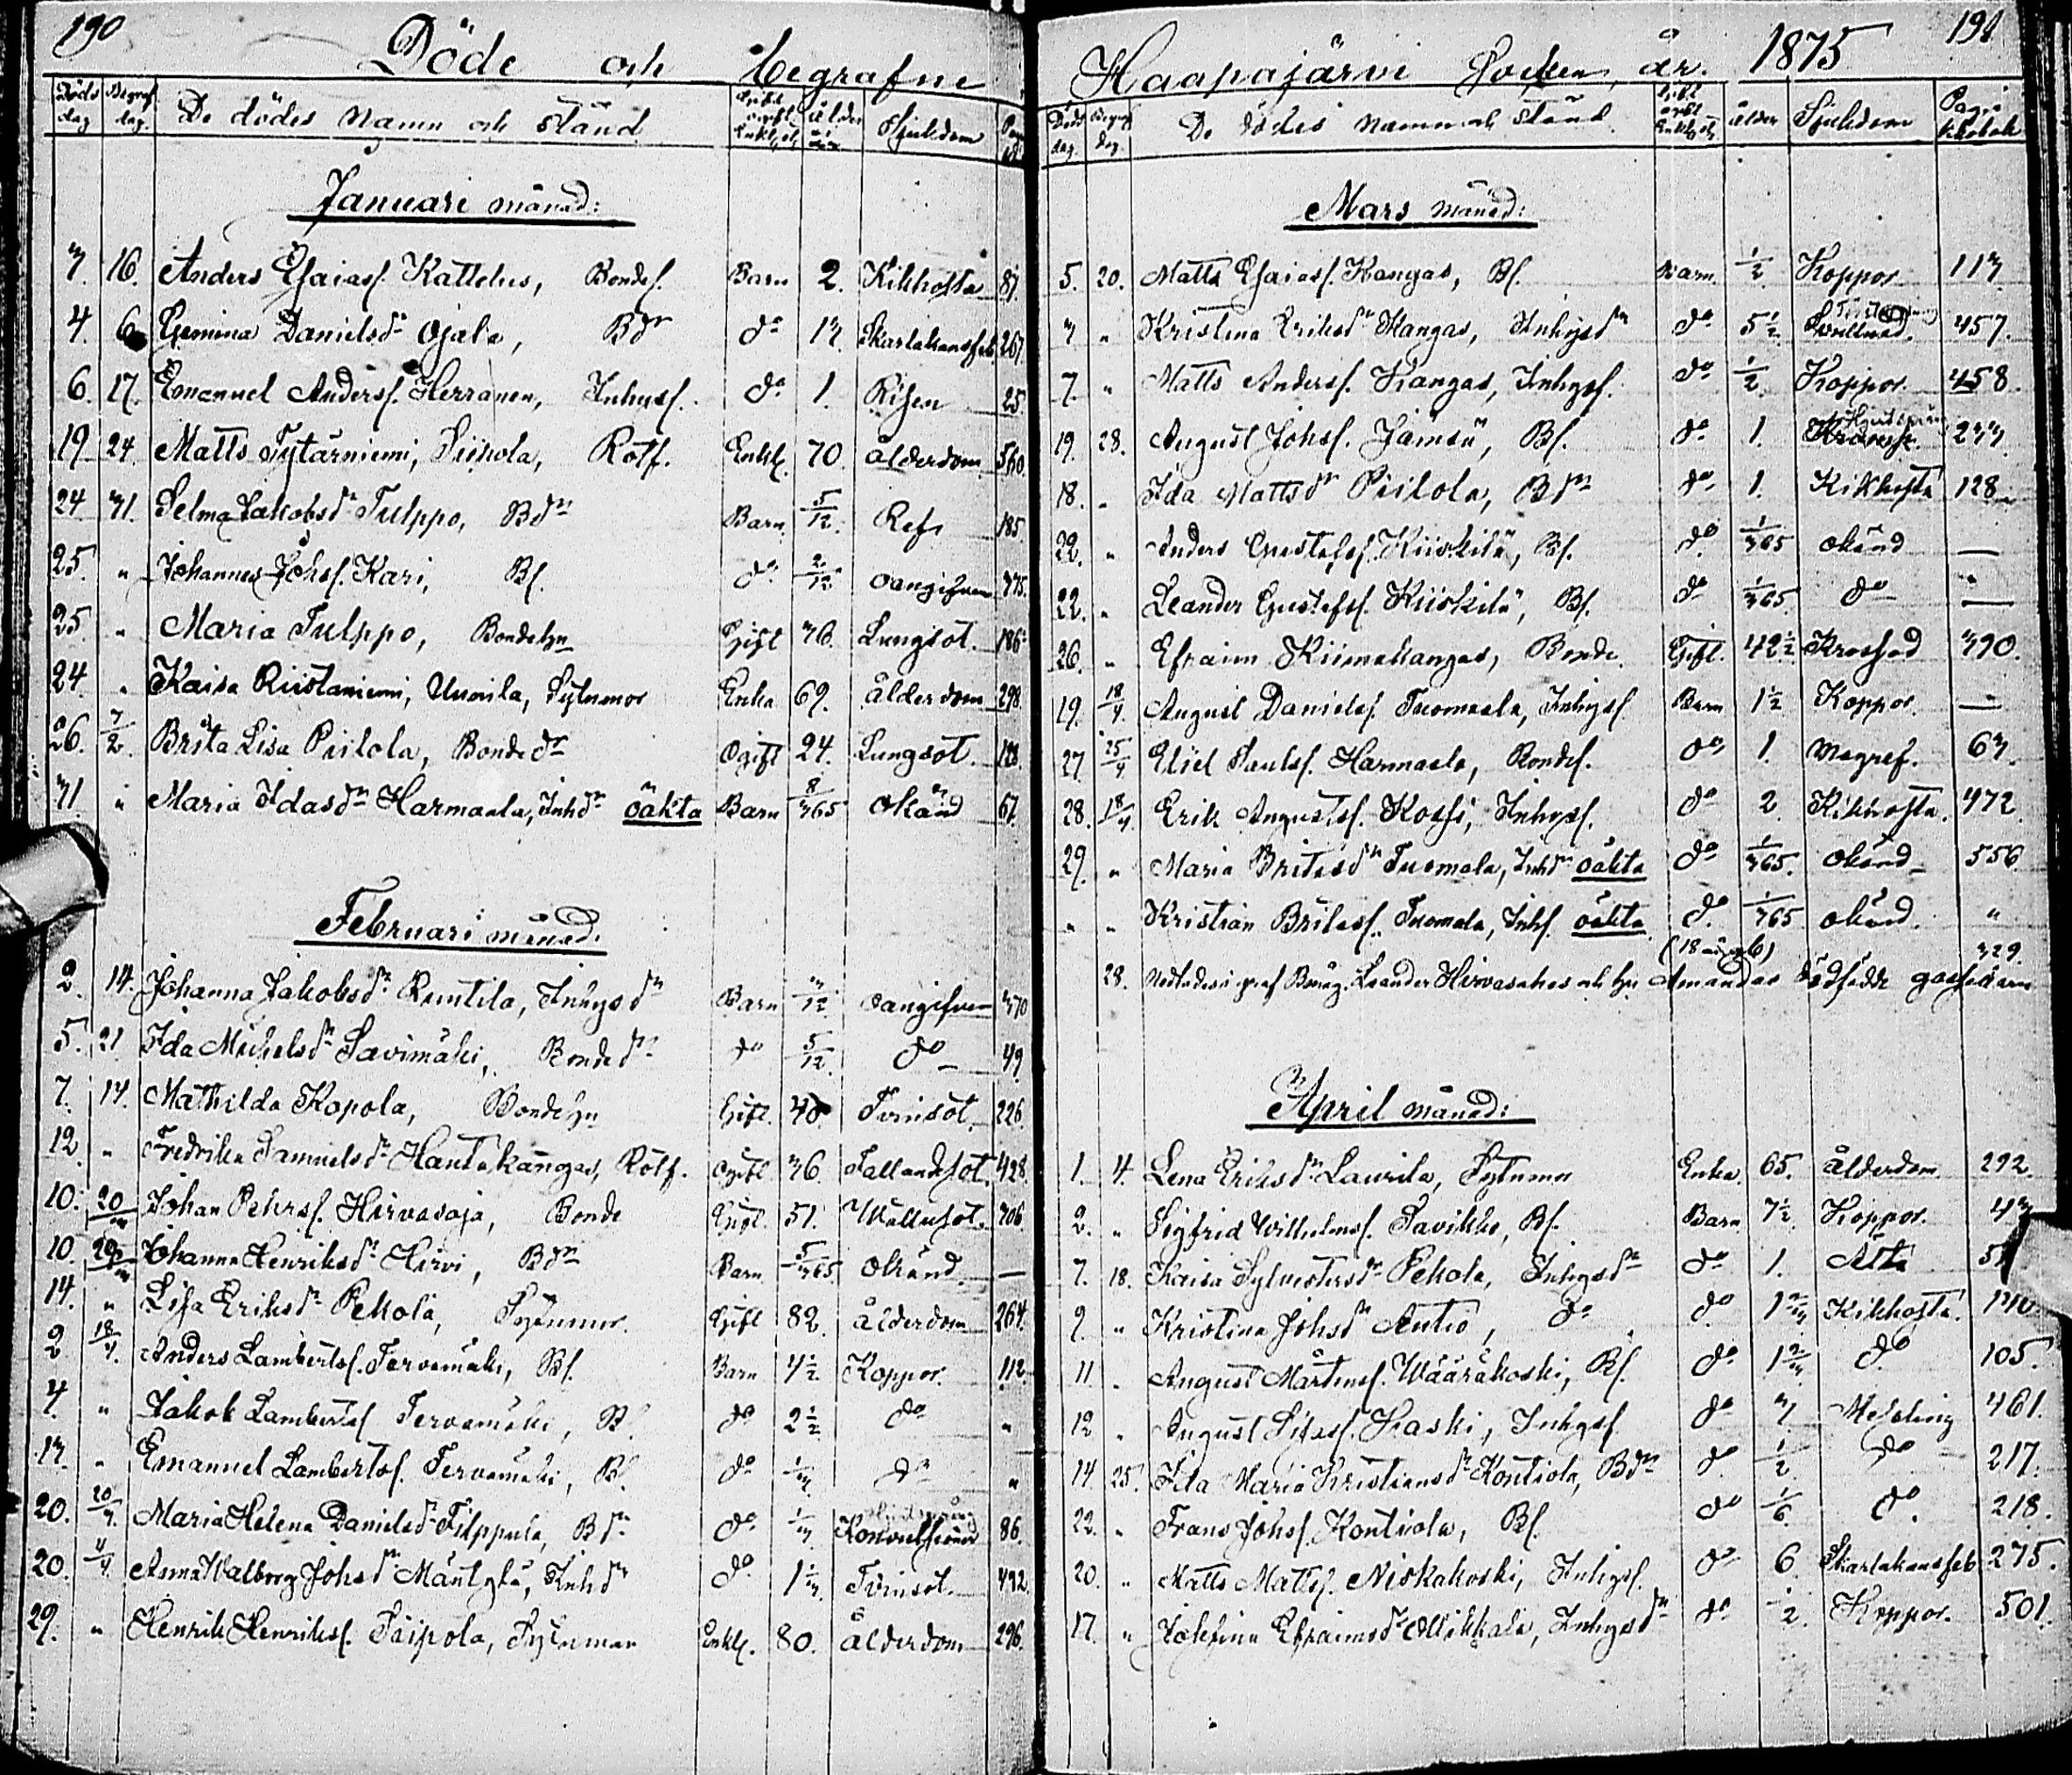 190
Döde och begrafne
Döds dag Begraf. dag. De dödes Namn och stånd Gift ogift Enkl. etc ålder i år Sjukdom Pag.
Januari månad:
7. 16. Anders Esaiass. Kattelus, Bondes. Barn 2. Kikhosta 81.
4. 6 Gemina Danielsdr Ojala, Bdr do 17. Skarlakansfeb. 267.
6. 17. Emanuel Anderss. Herranen, Inhyss. do 1. Risen 25.
19. 24. Matts Tytärniemi, Siipola, Rotf. Enkl. 70. ålderdom 560.
24 31. Selma Jakobsdr Tulppo, Bdr Barn 5/12. Refr 185.
25. " Johannes Johss. Kari, Bs. do 2/12 oangifven 375.
25. " Maria Tulppo, Bondehu Gift 36. Lungsot. 186.
24. " Kaisa Ristaniemi, Uusila, Sytnmor Enka 69. ålderdom 298.
26. 7/2. Brita Lisa Piilola, Bondedr Ogift 24. Lungsot. 128.
31 " Maria Idasdr Harmaala, Inhdr oäkta Barn 8/365 okänd 67.
Februari månad:
2. 14. Johanna Jakobsdr Runtila, Inhysdr Barn 3/12. oangifven 370
5. 21 Ida Michelsdr Savimäki, Bondedr do 5/12. do 49
7. 14. Mathilda Kopola, Bondehu Gift. 40 Tvinsot. 226.
12. " Fredrika Samuelsdr Hautakangas, Rotf. Ogift. 36. Fallandesot. 428.
10. 20/3 Johan Pehrss. Hirvasoja, Bonde Gift. 51. Wattusot. 306.
10. 20/3 Johanna Henriksdr Hirvi, Bdr Barn 5/365 okänd. —
14. " Lisa Eriksdr Pekola, Sytnmor. Gift 82. ålderdom 264.
2 18/4. Anders Lambertss. Tervamäki, Bs. Barn 4½ Koppor. 112.
4. " Jakob Lambertss Tervamäki, Bs. do 2½ do "
13. " Emanuel Lambertss. Tervamäki, Bs. do 1/3. do "
20. 20/3. Maria Helena Danielsdr Filppula, Bdr do 1/3. Konvulsioner 86.
20. 4/4. Anna Walborg Johsdr Mäntylä, Inhdr do 1 1/3. Tvinsot. 492.
29. " Henrik Henrikss. Siipola, Sytnman Enkl. 80. ålderdom 296.
191
Haapajärvi Socken, år. 1875
Döds dag. Begraf dag. De dödes Namn och stånd Gift ogift Enkl. etc ålder Sjukdom Pag. i K.bok
Mars månad:
5. 20. Matts Esaiass. Kangas, Bs. Barn. ½ Koppor 113
7 " Kristina Eriksdr Kangas, Inhysdr do 5½ 457.
7. " Matts Anderss. Kangas, Inhyss. do ½. Koppor. 458.
19. 28. August Johss. Jämsä, Bs. do 1. 233.
18. " Ida Mattsdr Piilola, Bdr do 1. Kikhosta 128
22. " Anders Gustafss. Kiiskilä, Bs. do 1/365 okänd —
22. " Leander Gustafss. Kiiskilä, Bs. do 1/365. do —
26. " Efraim Kiimakangas, Bonde. Gift. 42½ Krossad 390.
19. 18/4. August Danielss. Tuomaala, Inhyss. Barn 1½ Koppor. —
27. 25/4 Eliel Paulss. Harmaala, Bondes. do 1. Magref. 63.
28. 18/4. Erik Augustss. Koski, Inhyss. do 2 Kikhosta. 472.
29. " Maria Britasdr Tuomala, Inhdr oäkta do 1/365. okänd 556.
" " Kristian Britass. Tuomala, Inhs. oäkta do. 1/365 okänd. "
(18 år gl) 329.
28. Nedlades i graf Bemäg. Leander Hirvasahos och hu Amandas dödfödde gossebarn
April månad:
1. 4. Lena Eriksdr Laurila, Sytnmor Enka. 65. ålderdom 292.
2. " Sigfrid Wilhelmss. Savikko, Bs. Barn. 7½ Koppor. 43
7. 18. Kaisa Sylvestersdr Pekola, Inhysdr do 1. Ältä 5
9. " Kristina Johsdr Autio, do do 1 2/3 Kikhosta. 140
11 " August Mårtenss. Wääräkoski, Bs. do 1 2/3 do 105.
12 " August Lisass. Kaski, Inhyss do 3 Messling 461.
14 25. Ida Maria Kristiansdr Kontiola, Bdr do ½ do 217.
22. " Frans Johss. Kontiola, Bs. do 1/6. do. 218.
20. " Matts Mattss. Niskakoski, Inhyss. do 6 Skarlakansfeb. 275.
17. " Josefina Efraimsdr Mikkala, Inhysdr do ½. Koppor. 501.